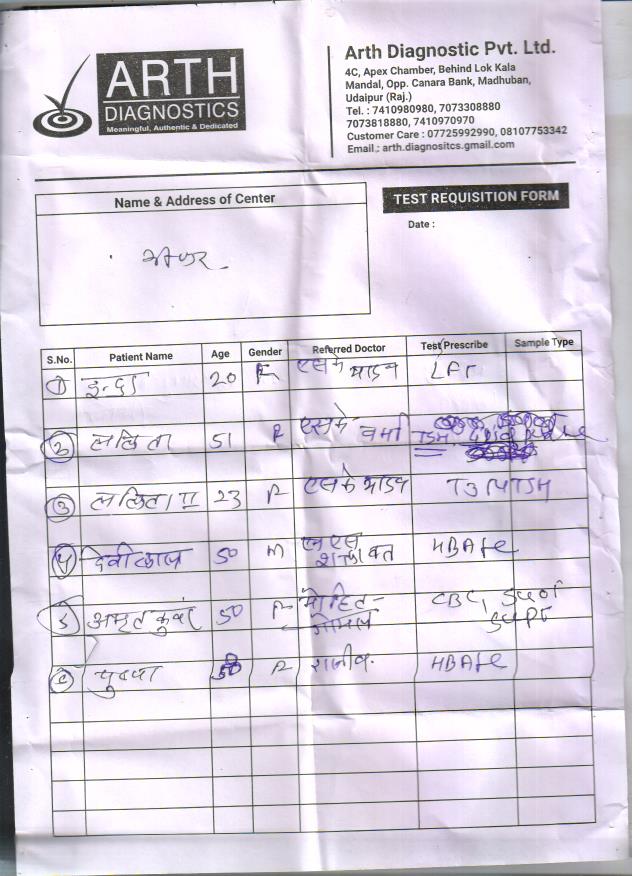 ARTH
DIAGNOSTICS
Meaningful, Authentic & Dedicated
Arth Diagnostic Pvt. Ltd.
4C, Apex Chamber, Behind Lok Kala
Mandal, Opp. Canara Bank, Madhuban,
Udaipur (Raj.)
Tel. : 7410980980, 7073308880
7073818880, 7410970970
Customer Care : 07725992990, 08107753342
Email : arth.diagnositcs.gmail.com
Name & Address of Center
TEST REQUISITION FORM
Date :
S.No. Patient Name Age Gender Referred Doctor Test Prescribe Sample Type
1 20 F एसके LFT
2 ललिता 51 F एसके वर्मा TSH
3 ललिता II 23 F एसके T3T4TSH
4 देवीलाल 50 M एन एस HBA1c
5 अमृत कुवर 50 F मोहित CBC, SGOT
SGPT
6 F राजीव HBA1c